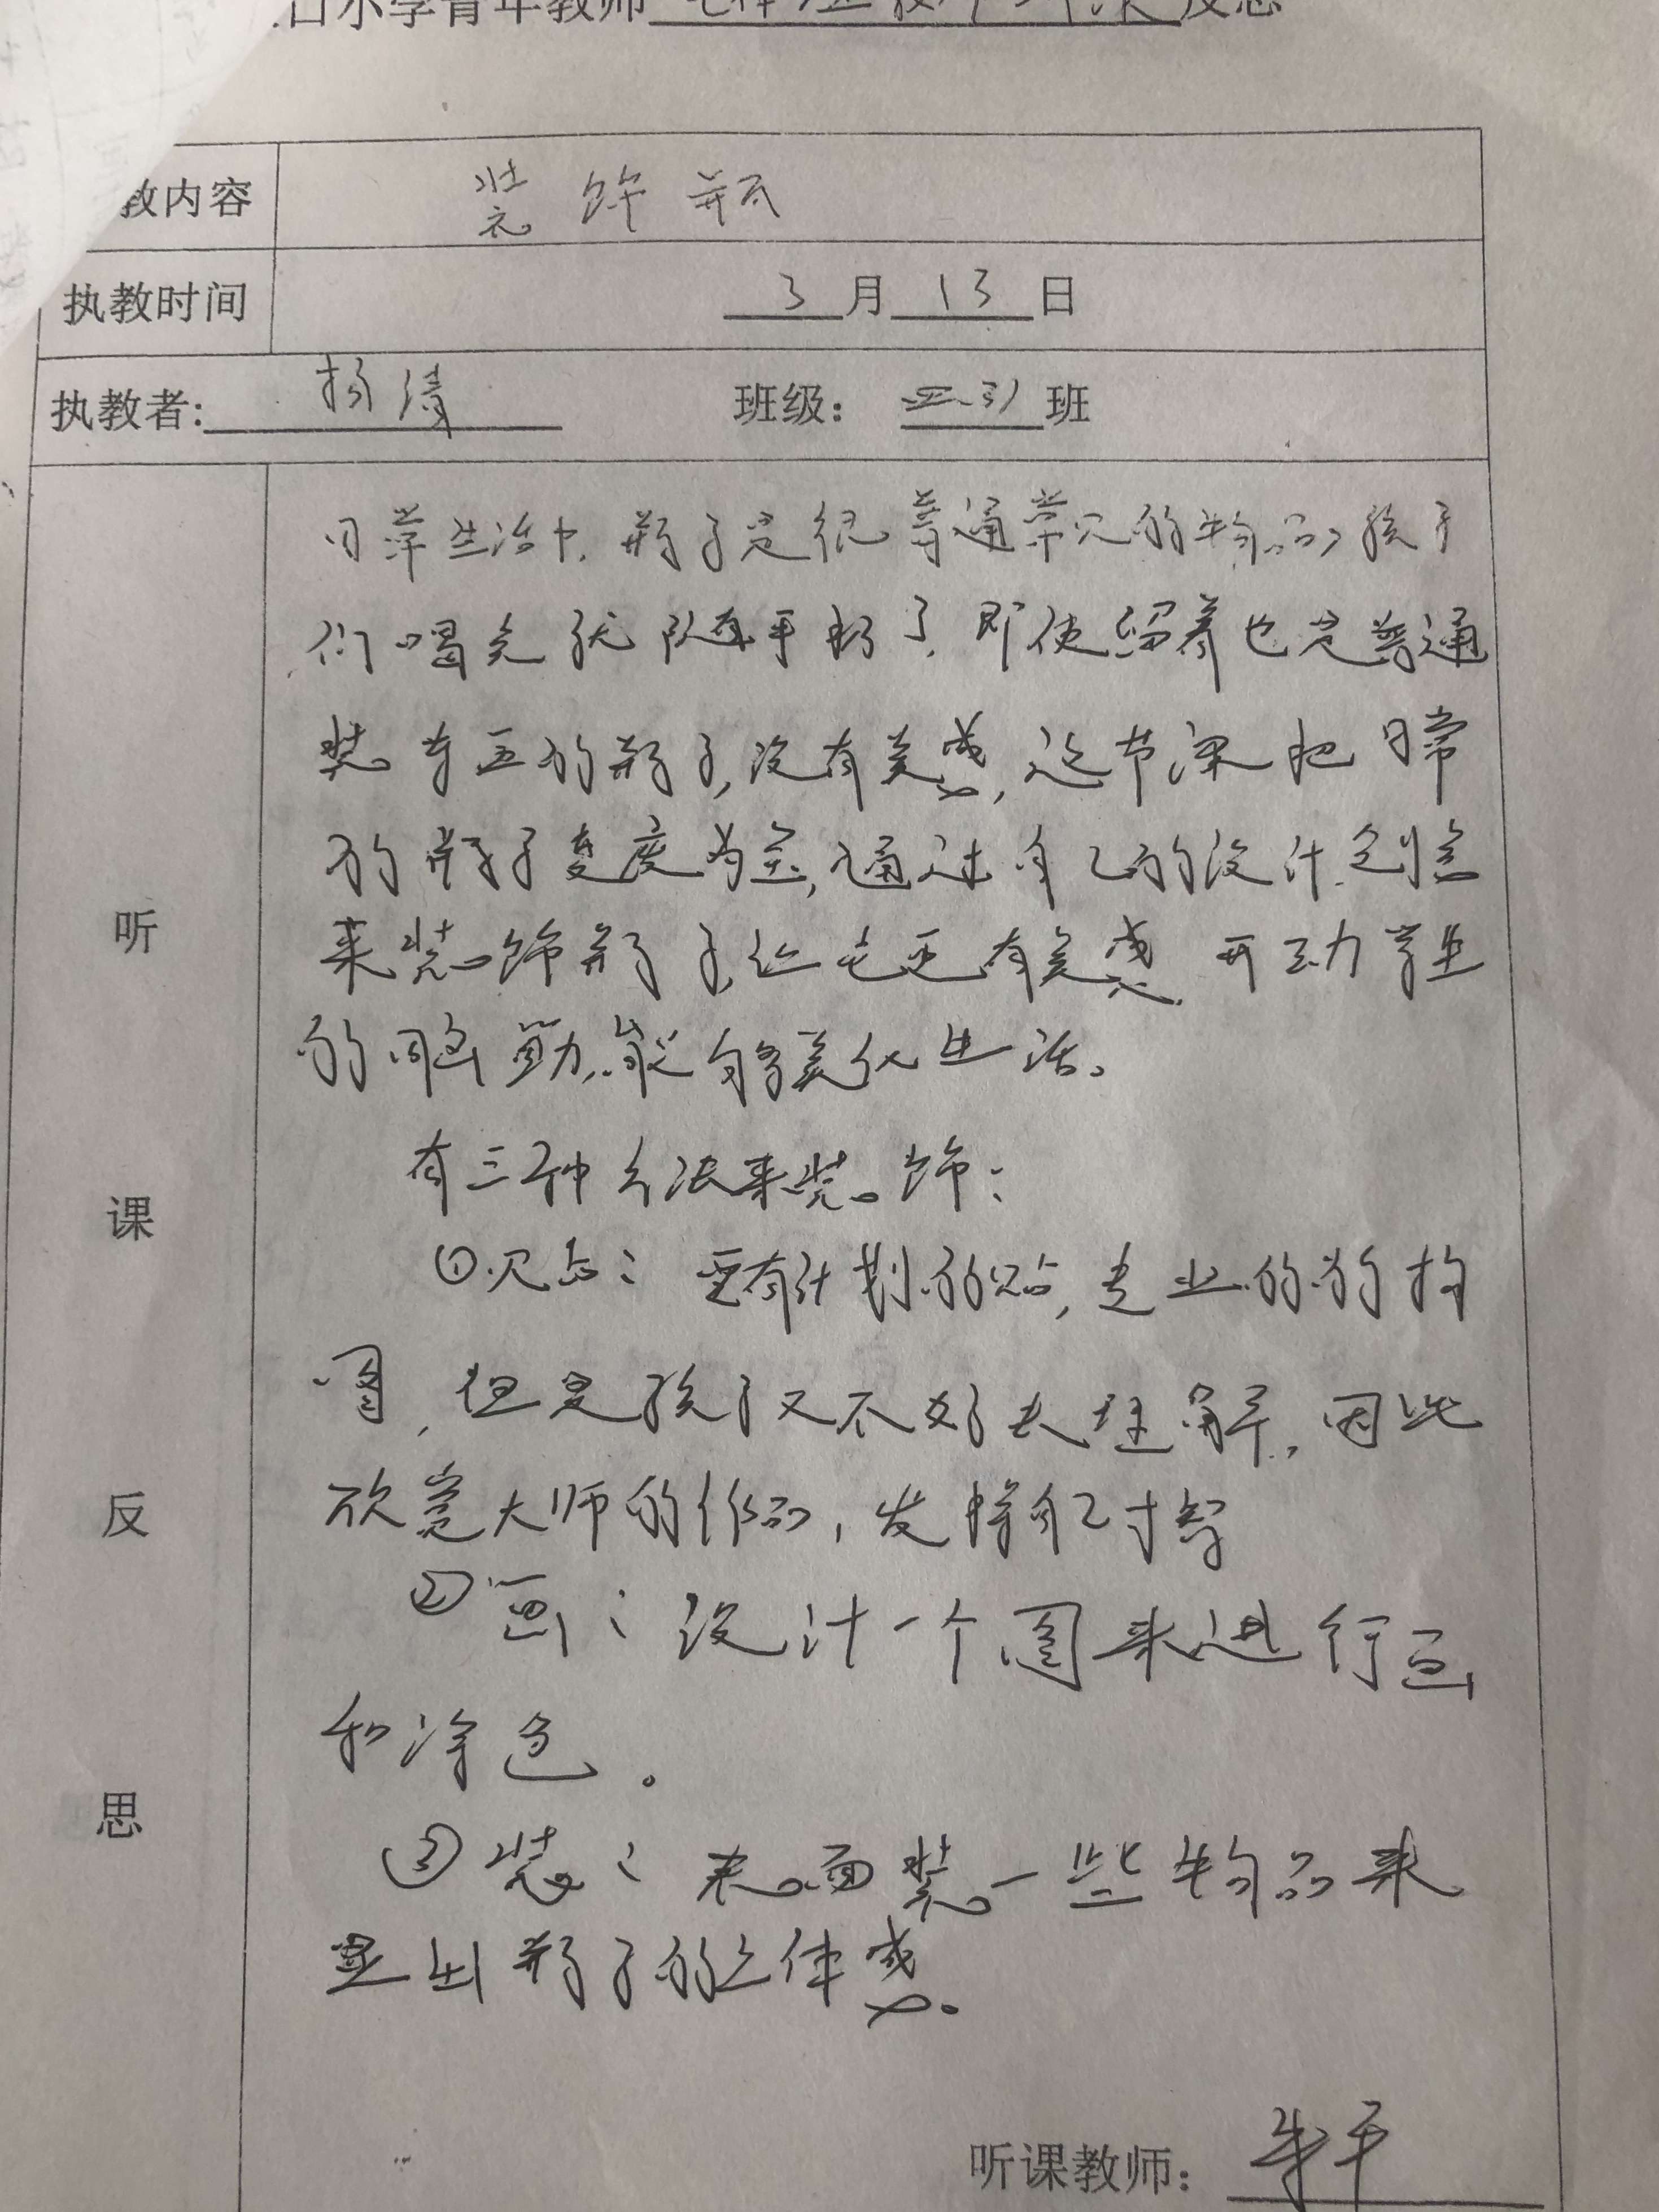 口小学青年教师 反思
教内容 装饰瓶
执教时间 3月13日
执教者: 杨清 班级: 班
日常生活中,瓶子是很普通常见的物品,孩子
们喝完就随手扔了,即使留着也是普通
装东西的瓶子,没有美感,这节课把日常
的瓶子变废为宝,通过自己的设计创意
来装饰瓶子,让它更有美感,开动学生
的脑筋,能够美化生活。
有三种方法来装饰:
①贴: 要有计划的贴,专业的 构
图,但是孩子又不好去理解,因此
欣赏大师的作品,发挥自己才智
②画:设计一个图来进行画
和涂色。
③装:表面装一些物品来
显出瓶子的立体感。
听
课
反
思
听课教师: 朱平